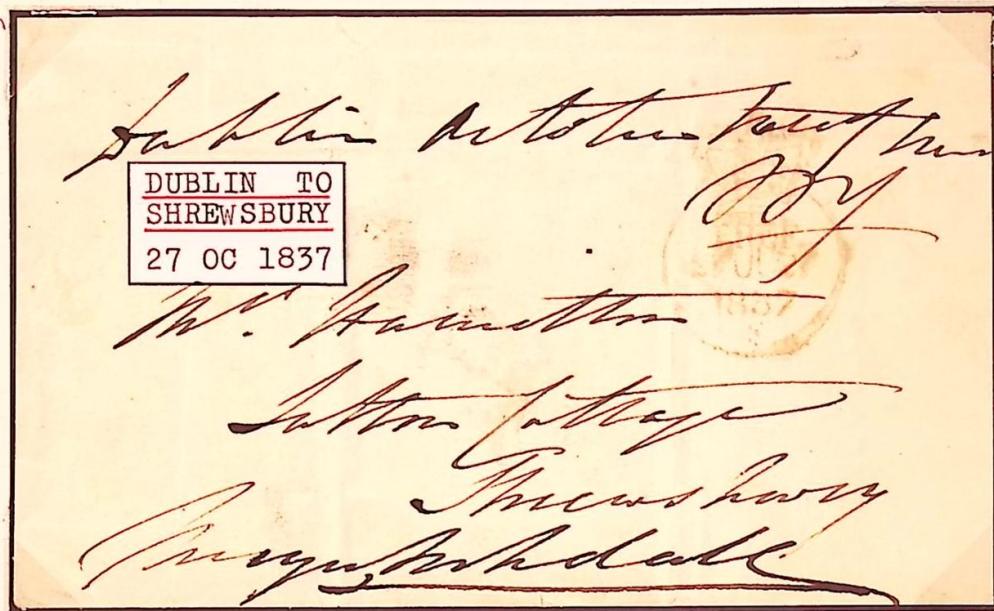 Dublin October Twenty Seven
DUBLIN TO
SHREWSBURY
27 OC 1837
Mrs. Hamilton
Sutton Cottage
Shrewsbury
1837